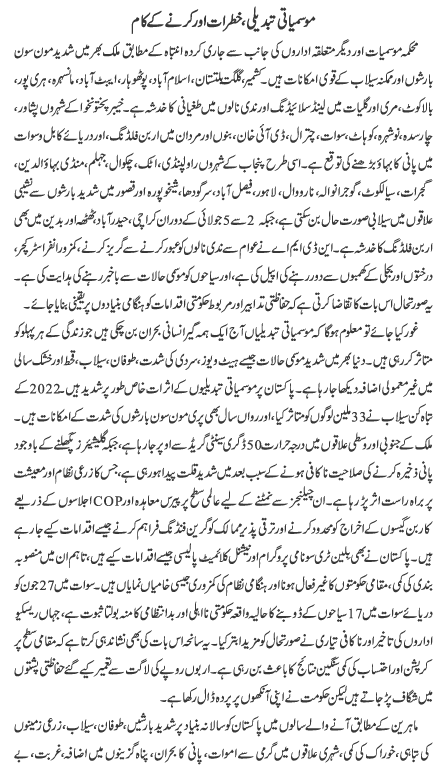 موسمیاتی تبدیلی، خطرات اور کرنے کے کام
محکمہ موسمیات اور دیگر متعلقہ اداروں کی جانب سے جاری کردہ انتباہ کے مطابق ملک بھر میں شدید مون سون
بارشوں اور ممکنہ سیلاب کے قوی امکانات ہیں۔ کشمیر، گلگت بلتستان، اسلام آباد، پوٹھوہار، ایبٹ آباد، مانسہرہ، ہری پور،
بالاکوٹ، مری اور گلیات میں لینڈ سلائیڈنگ اور ندی نالوں میں طغیانی کا خدشہ ہے۔ خیبر پختونخوا کے شہروں پشاور،
چارسدہ، نوشہرہ، کوہاٹ، سوات، چترال، ڈی آئی خان، بنوں اور مردان میں اربن فلڈنگ، اور دریائے کابل و سوات
میں پانی کا بہاؤ بڑھنے کی توقع ہے۔ اسی طرح پنجاب کے شہروں راولپنڈی، اٹک، چکوال، جہلم، منڈی بہاؤالدین،
گجرات، سیالکوٹ، گوجرانوالہ، نارووال، لاہور، فیصل آباد، سرگودھا، شیخوپورہ اور قصور میں شدید بارشوں سے نشیبی
علاقوں میں سیلابی صورت حال بن سکتی ہے، جبکہ 2 سے 5 جولائی کے دوران کراچی، حیدرآباد، ٹھٹھہ اور بدین میں بھی
اربن فلڈنگ کا خدشہ ہے۔ این ڈی ایم اے نے عوام سے ندی نالوں کو عبور کرنے سے گریز کرنے، کمزور انفراسٹرکچر،
درختوں اور بجلی کے کھمبوں سے دور رہنے کی اپیل کی ہے، اور سیاحوں کو موسمی حالات سے باخبر رہنے کی ہدایت کی ہے۔
یہ صورتحال اس بات کا تقاضا کرتی ہے کہ حفاظتی تدابیر اور مربوط حکومتی اقدامات کو ہنگامی بنیادوں پر یقینی بنایا جائے۔
غور کیا جائے تو معلوم ہوگا کہ موسمیاتی تبدیلیاں آج ایک ہمہ گیر انسانی بحران بن چکی ہیں جو زندگی کے ہر پہلو کو
متاثر کر رہی ہیں۔ دنیا بھر میں شدید موسمی حالات جیسے ہیٹ ویوز، سردی کی شدت، طوفان، سیلاب، قحط اور خشک سالی
میں غیر معمولی اضافہ دیکھا جا رہا ہے۔ پاکستان پر موسمیاتی تبدیلیوں کے اثرات خاص طور پر شدید ہیں۔ 2022 کے
تباہ کن سیلاب نے 33 ملین لوگوں کو متاثر کیا، اور رواں سال بھی پری مون سون بارشوں کی شدت کے امکانات ہیں۔
ملک کے جنوبی اور وسطی علاقوں میں درجہ حرارت 50 ڈگری سینٹی گریڈ سے اوپر جا رہا ہے، جبکہ گلیشیئرز پگھلنے کے باوجود
پانی ذخیرہ کرنے کی صلاحیت ناکافی ہونے کے سبب بعد میں شدید قلت پیدا ہو رہی ہے، جس کا زرعی نظام اور معیشت
پر براہ راست اثر پڑ رہا ہے۔ ان چیلنجز سے نمٹنے کے لیے عالمی سطح پر پیرس معاہدہ اور COP اجلاسوں کے ذریعے
کاربن گیسوں کے اخراج کو محدود کرنے اور ترقی پذیر ممالک کو گرین فنڈنگ فراہم کرنے جیسے اقدامات کیے جا رہے
ہیں۔ پاکستان نے بھی بلین ٹری سونامی پروگرام اور نیشنل کلائمیٹ پالیسی جیسے اقدامات کیے ہیں، تاہم ان میں منصوبہ
بندی کی کمی، مقامی حکومتوں کا غیر فعال ہونا اور ہنگامی نظام کی کمزوری جیسی خامیاں نمایاں ہیں۔ سوات میں 27 جون کو
دریائے سوات میں 17 سیاحوں کے ڈوبنے کا حالیہ واقعہ حکومتی نااہلی اور بدانتظامی کا منہ بولتا ثبوت ہے، جہاں ریسکیو
اداروں کی تاخیر اور ناکافی تیاری نے صورتحال کو مزید ابتر کیا۔ یہ سانحہ اس بات کی بھی نشاندہی کرتا ہے کہ مقامی سطح پر
کرپشن اور احتساب کی کمی سنگین نتائج کا باعث بن رہی ہے۔ اربوں روپے کی لاگت سے تعمیر کیے گئے حفاظتی پشتوں
میں شگاف پڑ جاتے ہیں لیکن حکومت نے اپنی آنکھوں پر پردہ ڈال رکھا ہے۔
ماہرین کے مطابق آنے والے سالوں میں پاکستان کو سالانہ بنیاد پر شدید بارشیں، طوفان، سیلاب، زرعی زمینوں
کی تباہی، خوراک کی کمی، شہری علاقوں میں گرمی سے اموات، پانی کا بحران، پناہ گزینوں میں اضافہ، غربت، بے